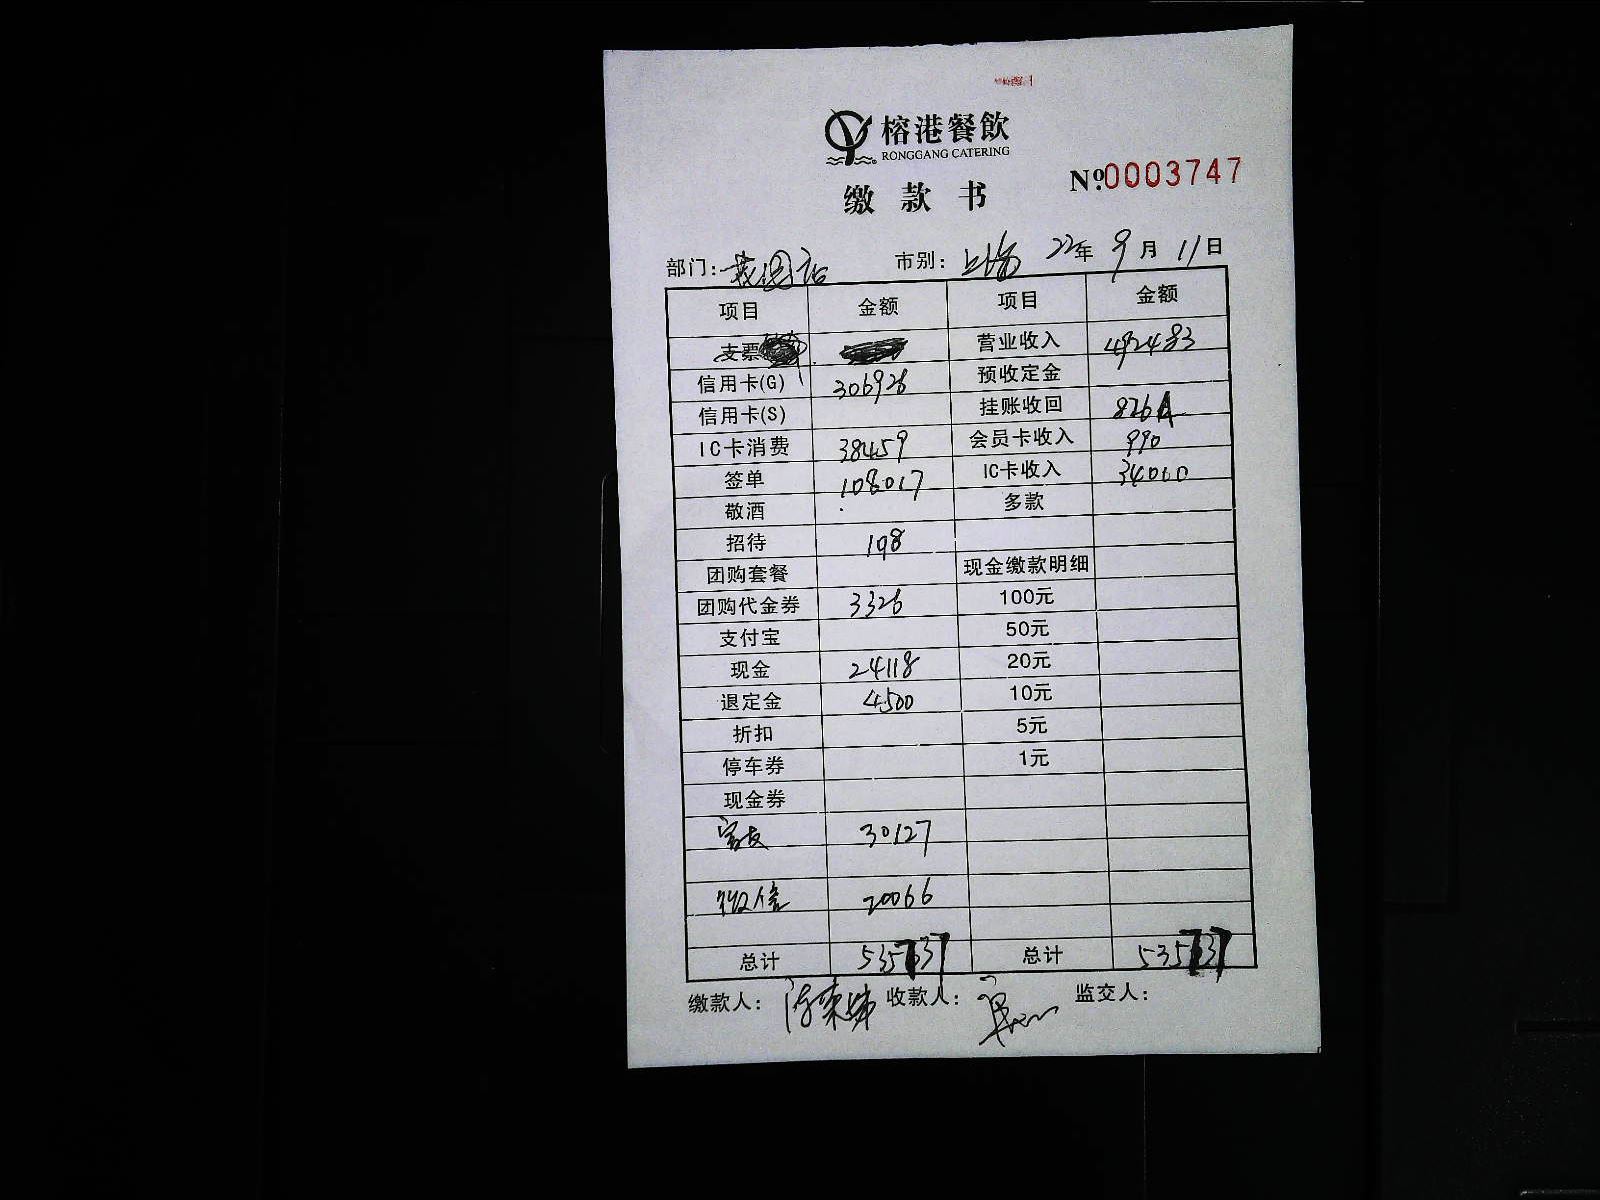 榕港餐飲
RONGGANG CATERING
缴款书
Nº 0003747
部门: 市别: 22年 9月 11日
项目 金额 项目 金额
支票 营业收入 492483
信用卡(G) 306926 预收定金
信用卡(S) 挂账收回 8264
IC卡消费 38459 会员卡收入 990
签单 108017 IC卡收入 34000
敬酒 多款
招待 198
团购套餐 现金缴款明细
团购代金券 3326 100元
支付宝 50元
现金 24118 20元
退定金 4500 10元
折扣 5元
停车券 1元
现金券
30127
微信 20066
总计 535737 总计 535737
缴款人: 收款人: 监交人: